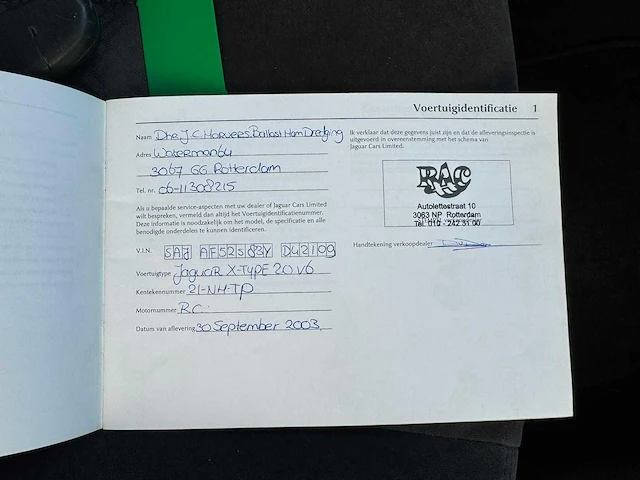 Voertuigidentificatie 1
Naam Dhr J.C. Horvers Ballast Ham Dredging
Adres Waterman 64
3067 GG Rotterdam
Tel. nr. 06-11308215
Als u bepaalde service-aspecten met uw dealer of Jaguar Cars Limited
wilt bespreken, vermeld dan altijd het Voertuigidentificatienummer.
Deze informatie is noodzakelijk om het model, de specificatie en alle
benodigde onderdelen te kunnen identificeren.
V.I.N. SAJ AF52S83Y D42109
Voertuigtype Jaguar X-TYPE 2.0 V6
Kentekennummer 21-NH-TP
Motornummer R.C.
Datum van aflevering 30 September 2003
Ik verklaar dat deze gegevens juist zijn en dat de afleveringsinspectie is
uitgevoerd in overeenstemming met het schema van
Jaguar Cars Limited:
Autolettestraat 10
3063 NP Rotterdam
Tel. 010 - 242 31 00
Handtekening verkoopdealer